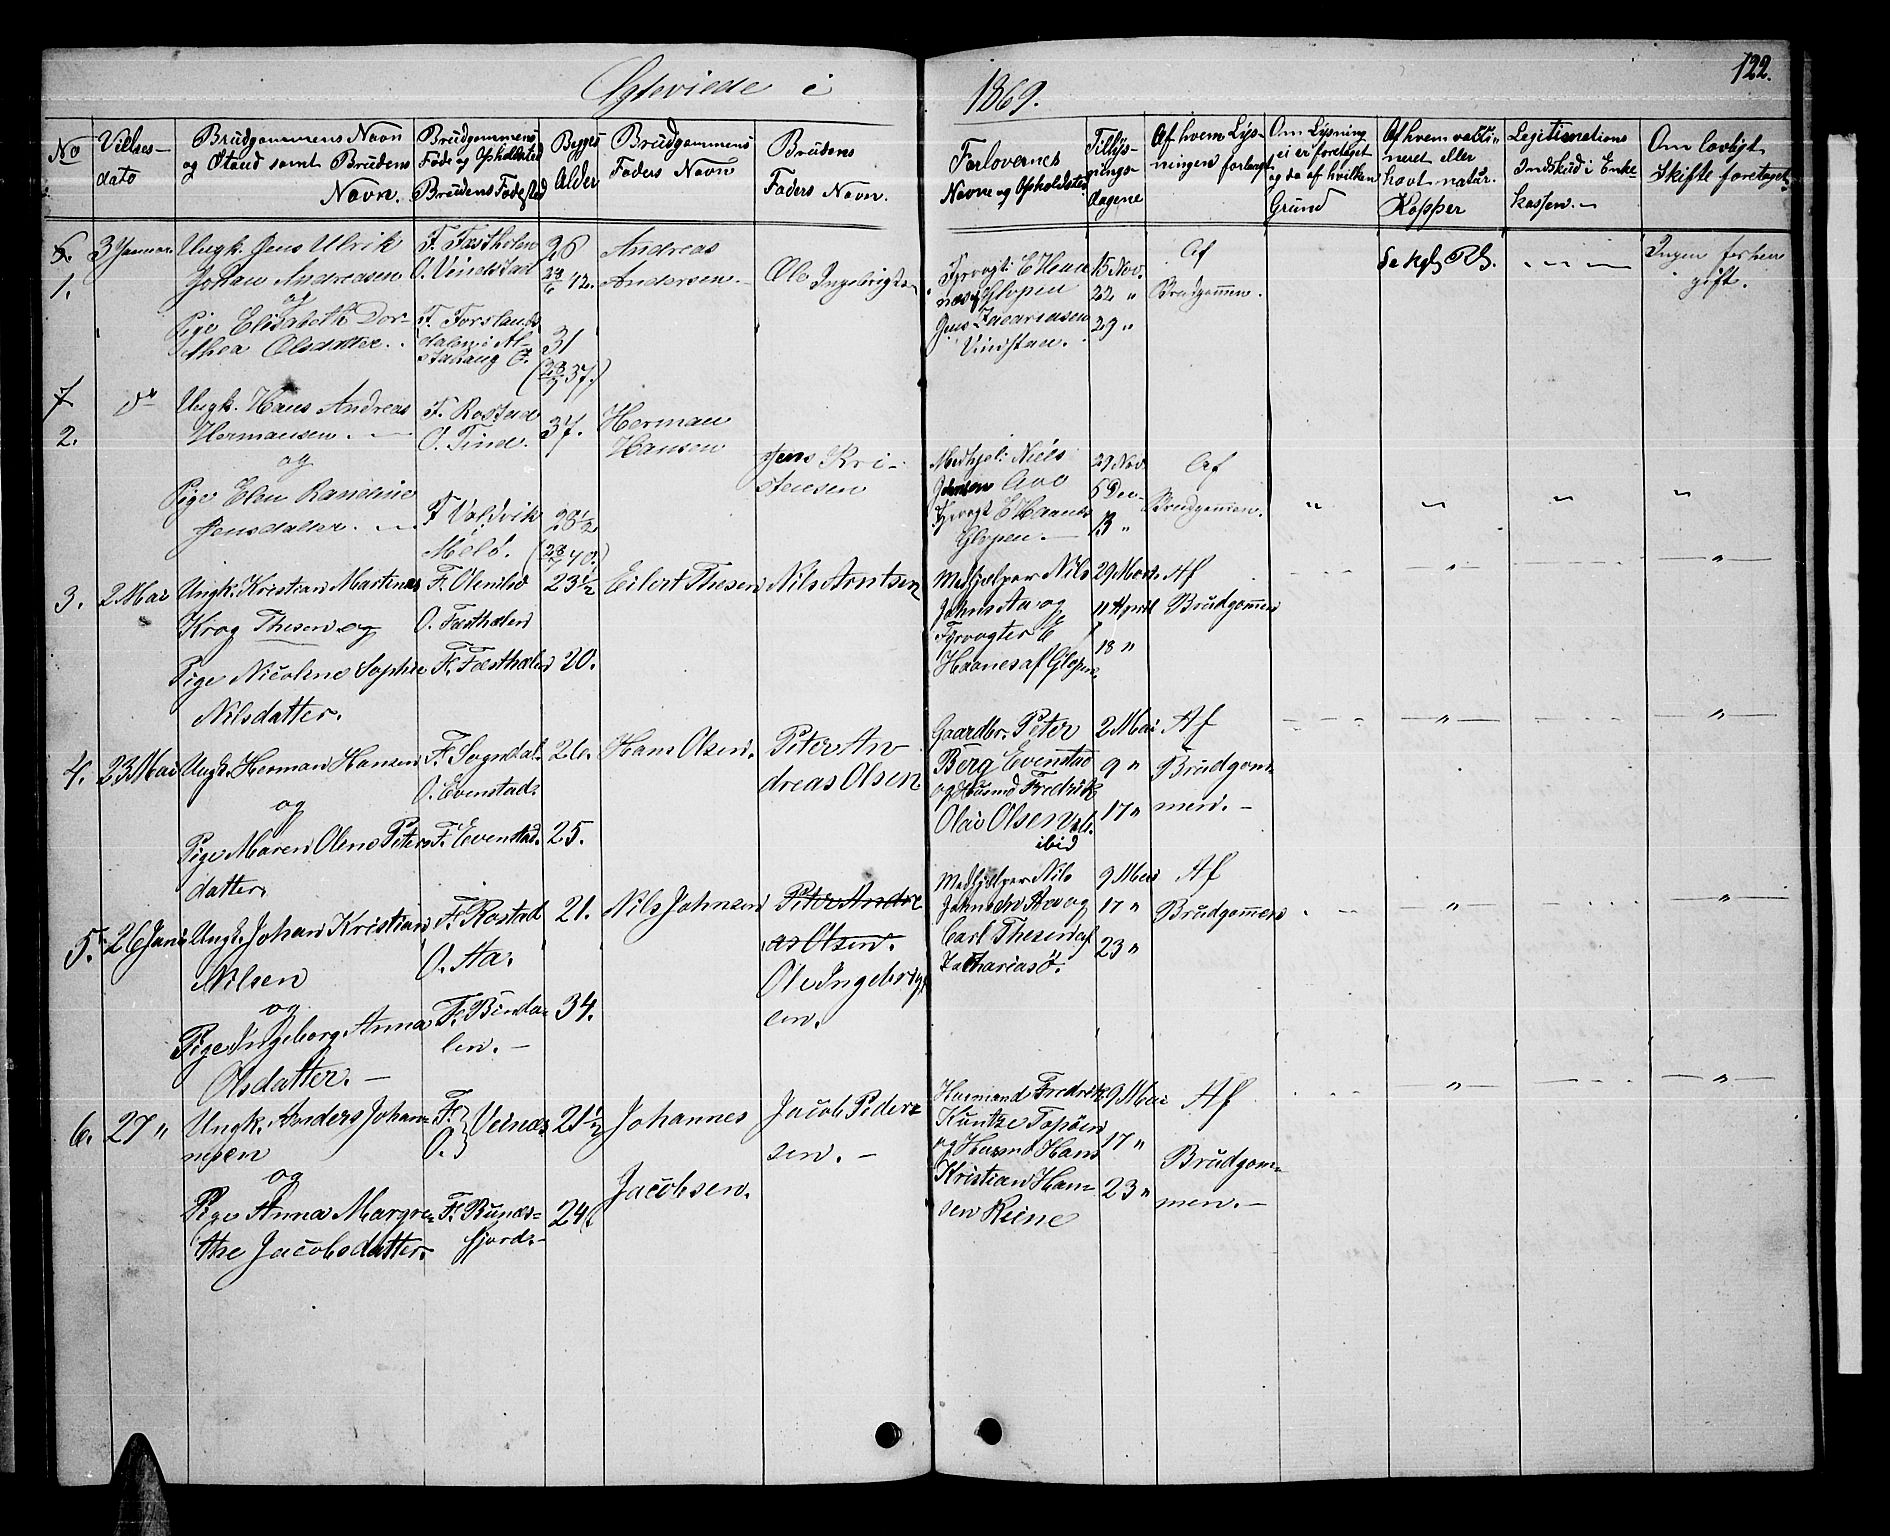 Ægteviede i
1869.
122.
No
Vielses-
dato
Brudgommens Navn
og Stand samt Brudens
Navn.
Brudgommens
Føde og Opholdsted
Brudens Fødested
Begges
Alder
Brudgommens
Faders Navn
Brudens
Faders Navn.
Forlovernes
Navne og Opholdsted
Tillys-
nings-
dagene
Af hvem Lys-
ningen forlangt
Om Lysning
ei er foretaget
og da af hvilken
Grund
Af hvem vakci-
neret eller
havt natur.
Kopper
Legitimations
Indskud i Enke-
kassen.-
Om lovligt
Skifte foretaget
6.
1.
3 Januar
Ungk. Jens Ulrik
Johan Andreasen
og
Pige Elisabeth Dor-
thea Olsdatter.
F. Festhelen
O. Vindstad
F. Forslands
dalen i Al-
stahaug O.
26
28/6 42.
31
(28/7 37.)
Andreas
Andersen.-
Ole Ingebrigts
Fyrvogt. E Haa
nes Glopen
Jens Zacariasen
Vindstad.
15 Nov.
22 "
29 "
Af
Brudgommen.
Se kgl. Rs.
Ingen forhen
gift.
7
2.
do
Ungk. Hans Andreas
Hermansen.-
og
Pige Elen Randine
Jensdatter.-
F. Rostad
O. Tind.
F Valdvik
Melö.
37.
28 1/2
(28/7 40.)
Herman
Hanson
Jens Kri-
stensen
Medhjel: Niels
Johnsen Aao
Fyrvogt E Haanes
Glopen.-
29 Nov.
5 Dec-
13 "
Af
Brudgommen.
" " " "
3. 2 Mai
Ungk. Kristian Martinus
Krog Thesen og
Pige Nicoline Sophie
Nilsdatter.
F. Olenilsö
O. Festhelen
F. Festhelen
23 1/2
20.
Eilert Thesen
Nils Arntsen
Medhjælper Nils
Johns Aa og
Fyrvogter E
Haanes af Glopen
29 Marts.
11 April
18 "
Af
Brudgommen
" "
4. 23 Mai
Ungk. Herman Hansen
og
Pige Maren Oline Peters
datter.
F. Sogndal.
O. Evenstad.
F. Evenstad.
26.
25.
Hans Olsen.
Peter An
dreas Olsen
Gaardbr. Peter
Berg Evenstad
og Husmd Fredrik
Olai Olsen
ibid
2 Mai
9 "
17 "
Af
Brudgom-
men.-
" "
5. 26 Juni
Ungk. Johan Kristian
Nilsen
og
Pige Ingeborg Anna
Olsdatter.-
F. Rostad
O. Aa.
F. Binda-
len.-
21.
34.
Nils Johnsen
Peter Andre
as Olsen.
Ole Ingebrigt
sen.
Medhjælper Nils
Johnsen Aa og
Carl Thesen af
Zachariasö.
9 Mai
17 "
23 "
Af
Brudgommen
" "
6. 27 "
Ungk. Anders Johan-
nesen
og
Pige Anna Margre-
the Jacobsdatter.
F.
O. } Veines
F. Bunes-
fjord.-
21 1/2
24
Johannes
Jacobsen.
Jacob Peder-
sen.-
Husmand Fredrik
Küntze Topöen
og Husmd Hans
Kristian Han-
sen Reine
9 Mai
17 "
23 "
Af
Brudgom-
men.-
" "